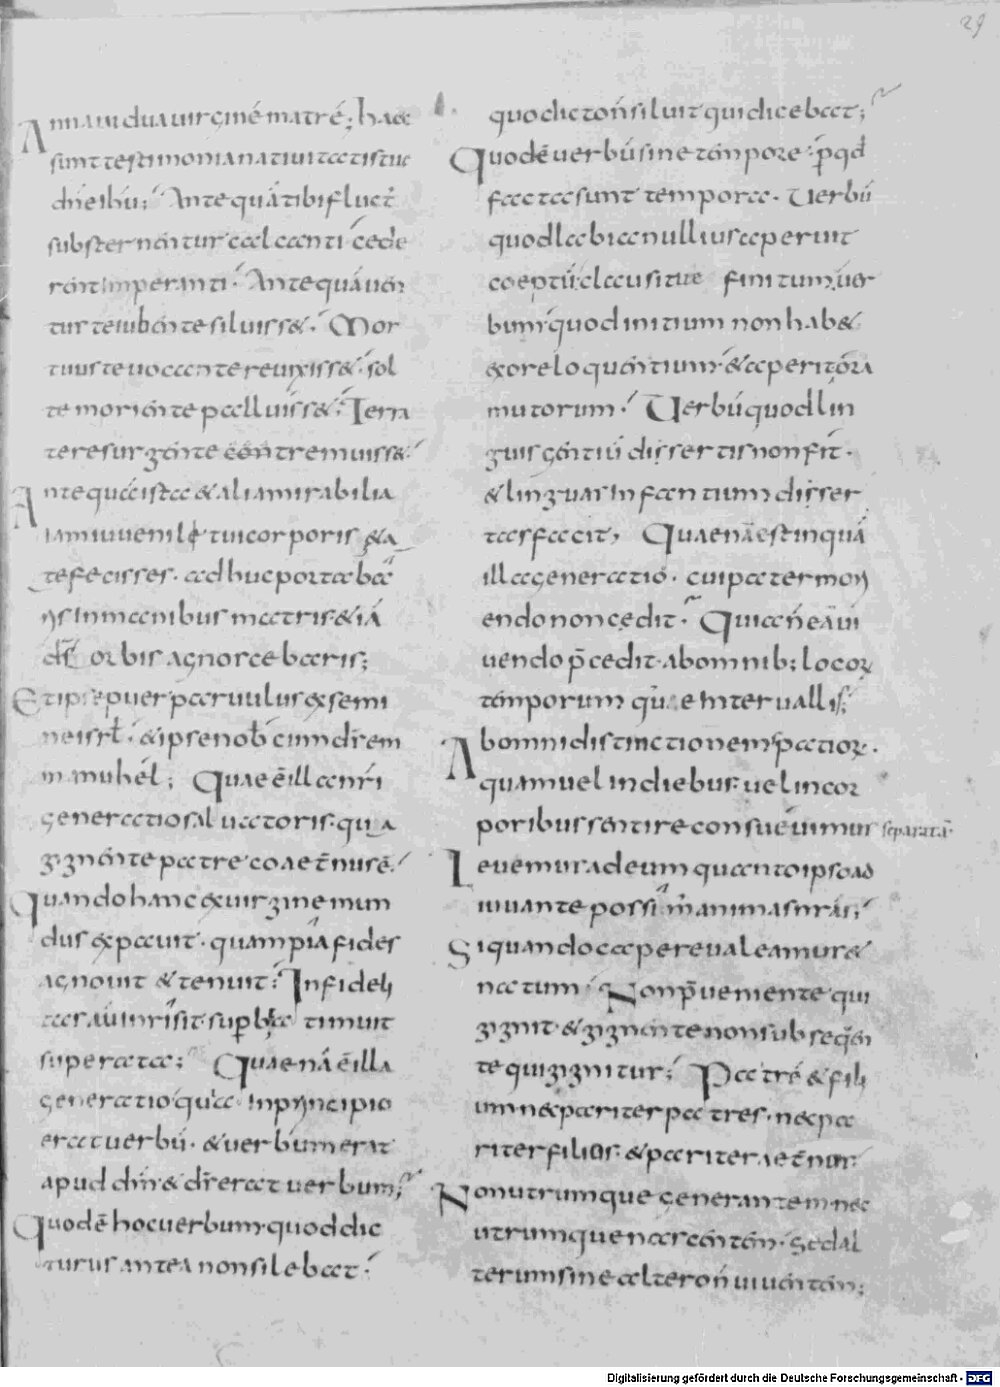 29
Anna uiduauirginē matrē; haec
sunt testimonia natiuitatis tuę
dn̄e ihū; Antequā tibi fluct̄
substernerentur calcanti cęde
rent imperanti Antequā uen
tus te iubente siluisset; Mor
tuus te uocante reuixisset; sol
te moriente palluisset; Terra
te resurgente contremuisset
Antequā ista & alia mirabilia
iam iuuenilę tui corporis ęta
te fecisses· adhuc portaba
ris in manibus matris & iā
dn̄s orbis agnoscebaris;
Et ipse puer paruulus ex semi
ne isrł· & ipse nobcum dn̄s em
manuhel; Quae ē illa nr̄i
generatio saluatoris· quia
gignente patre coaet̄nus ē·
Quando hanc ex uirgine mun
dus expauit· quam pia fides
agnouit & tenuit; Infideli
tas aūt inrisit· superba timuit
superata; Quae nā ē illa
generatio qua In principio
erat uerbū· & uerbum erat
apud dm̄ & ds̄ erat uerbum;
Quod ē hoc uerbum· quod dic
turus antea non silebat·
quo dicto n̄ siluit qui dicebat;
Quod ē uerbū sine tempore· p̄ qd̄
facta sunt tempora· Uerbū
quod labia nullius aperuit
coeptū; clausitue finitum; uer
bum quod initium non hab&
ex ore loquentium & aperit ora
mutorum· Uerbū quod lin
guis gentiū dissertis non fit·
& linguas Infantium disser
tas facit, Quae nā est inquā
illa generatio· cui pater mori
endo non cedit· Qui an̄ eā ui
uendo p̄cedit· ab omnib; locor
temporum quae Interuallis;
Ab omni distinctionem spatior·
quam uel in diebus uel in cor
poribus sentire consueuimus separatā·
Leuemur ad eum quanto ipso ad
iuuante possim̄ animas nr̄as;
Si quando capere ualeamus &
natum· Non p̄ueniente qui
gignit· & gignente non subseqen
te qui gignitur; Patrē & fili
um nec pariter patres· nec pa
riter filios· & pariter aet̄nos
Non utrumque generantem nec
utrumque nascentem· sed al
terum sine altero n̄ uiuentem;
Digitalisierung gefördert durch die Deutsche Forschungsgemeinschaft - DFG